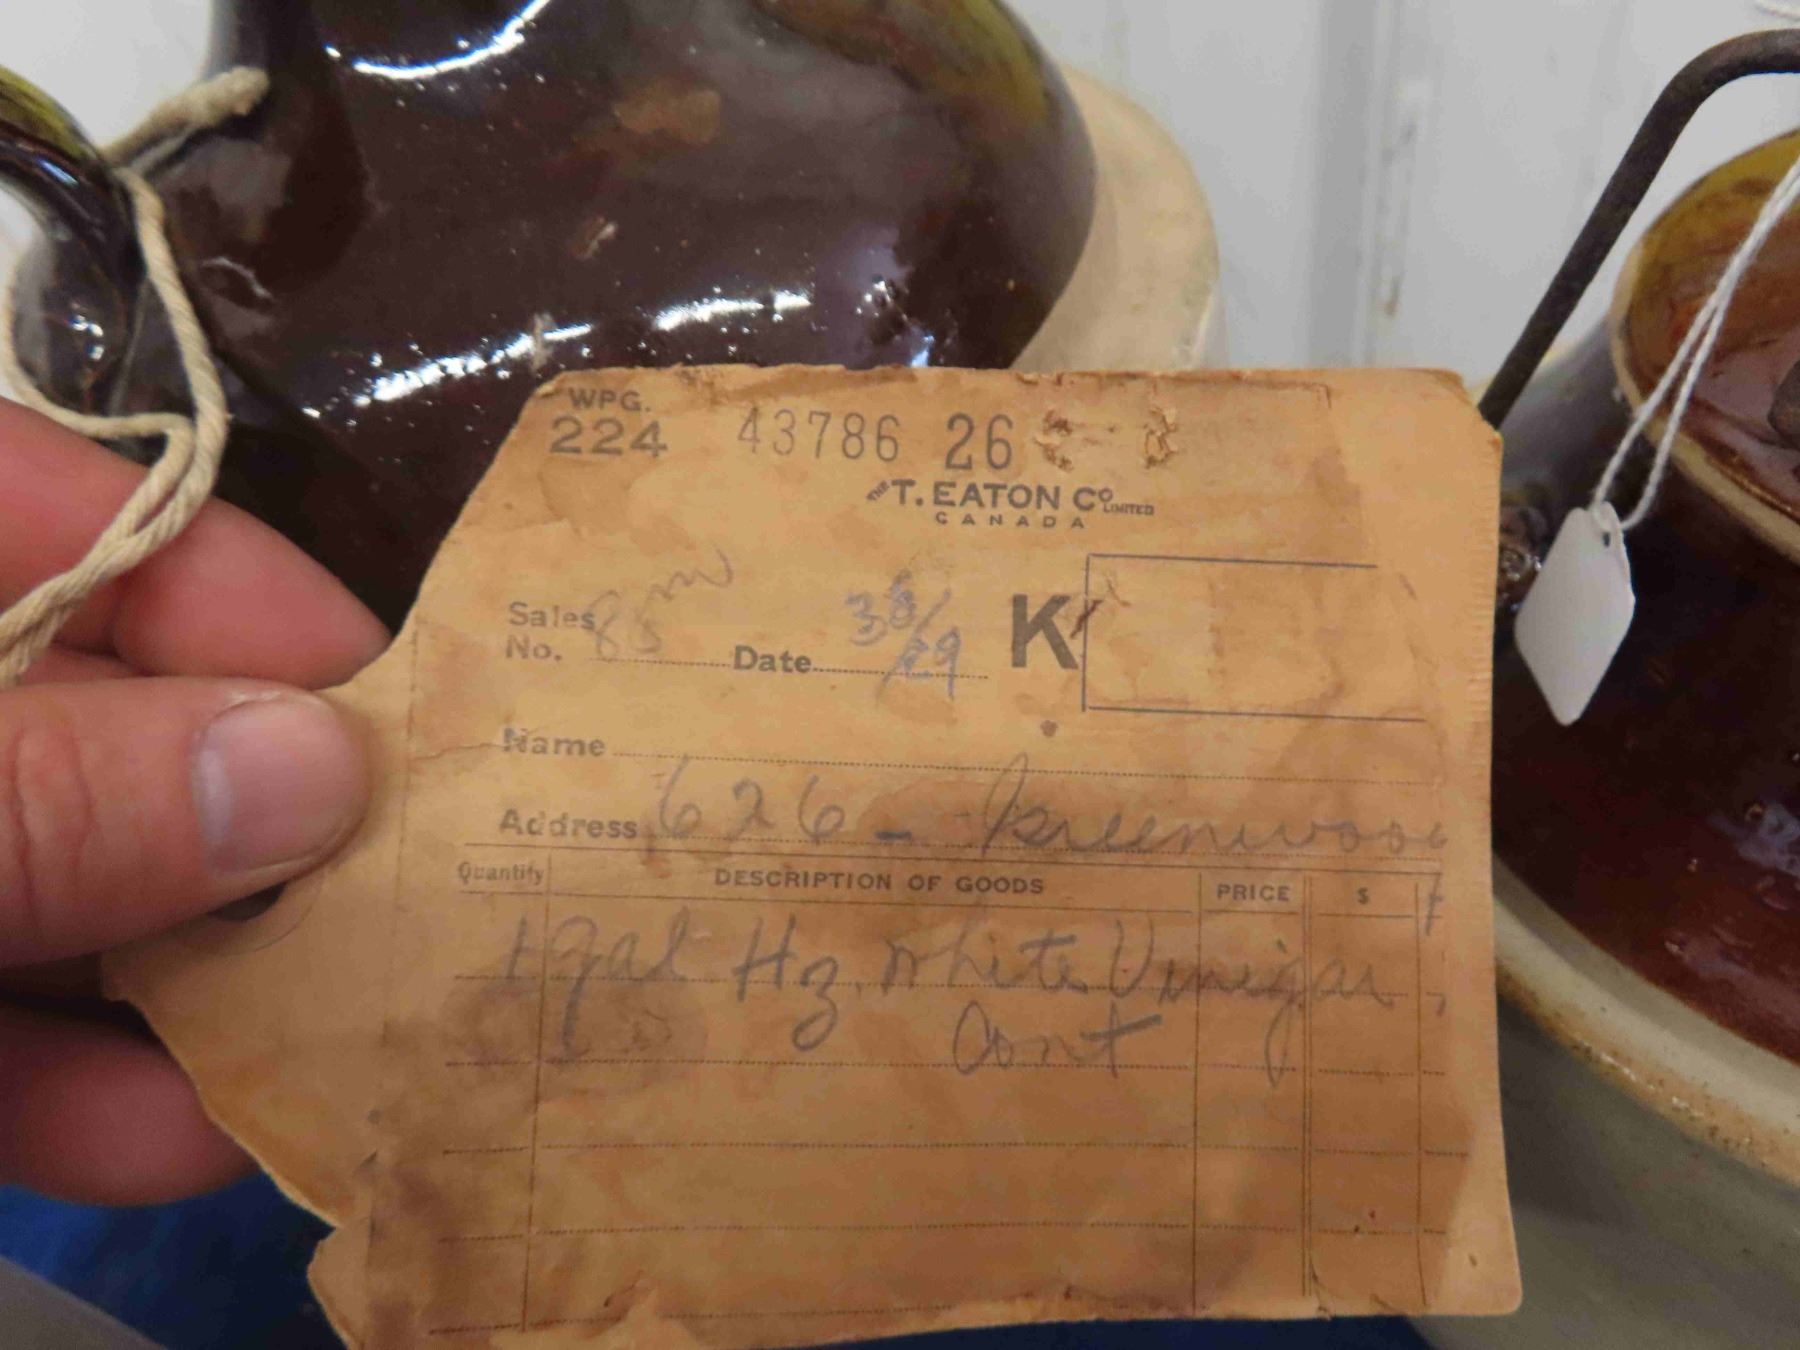 WPG.
224 43786 26
THE T. EATON CO LIMITED
CANADA
Sales
No. 85
Date 3 8/29
K
Name
Address 626 - Greenwood
Quantity DESCRIPTION OF GOODS PRICE $
1 gal Hz. White Vinegar
Cont